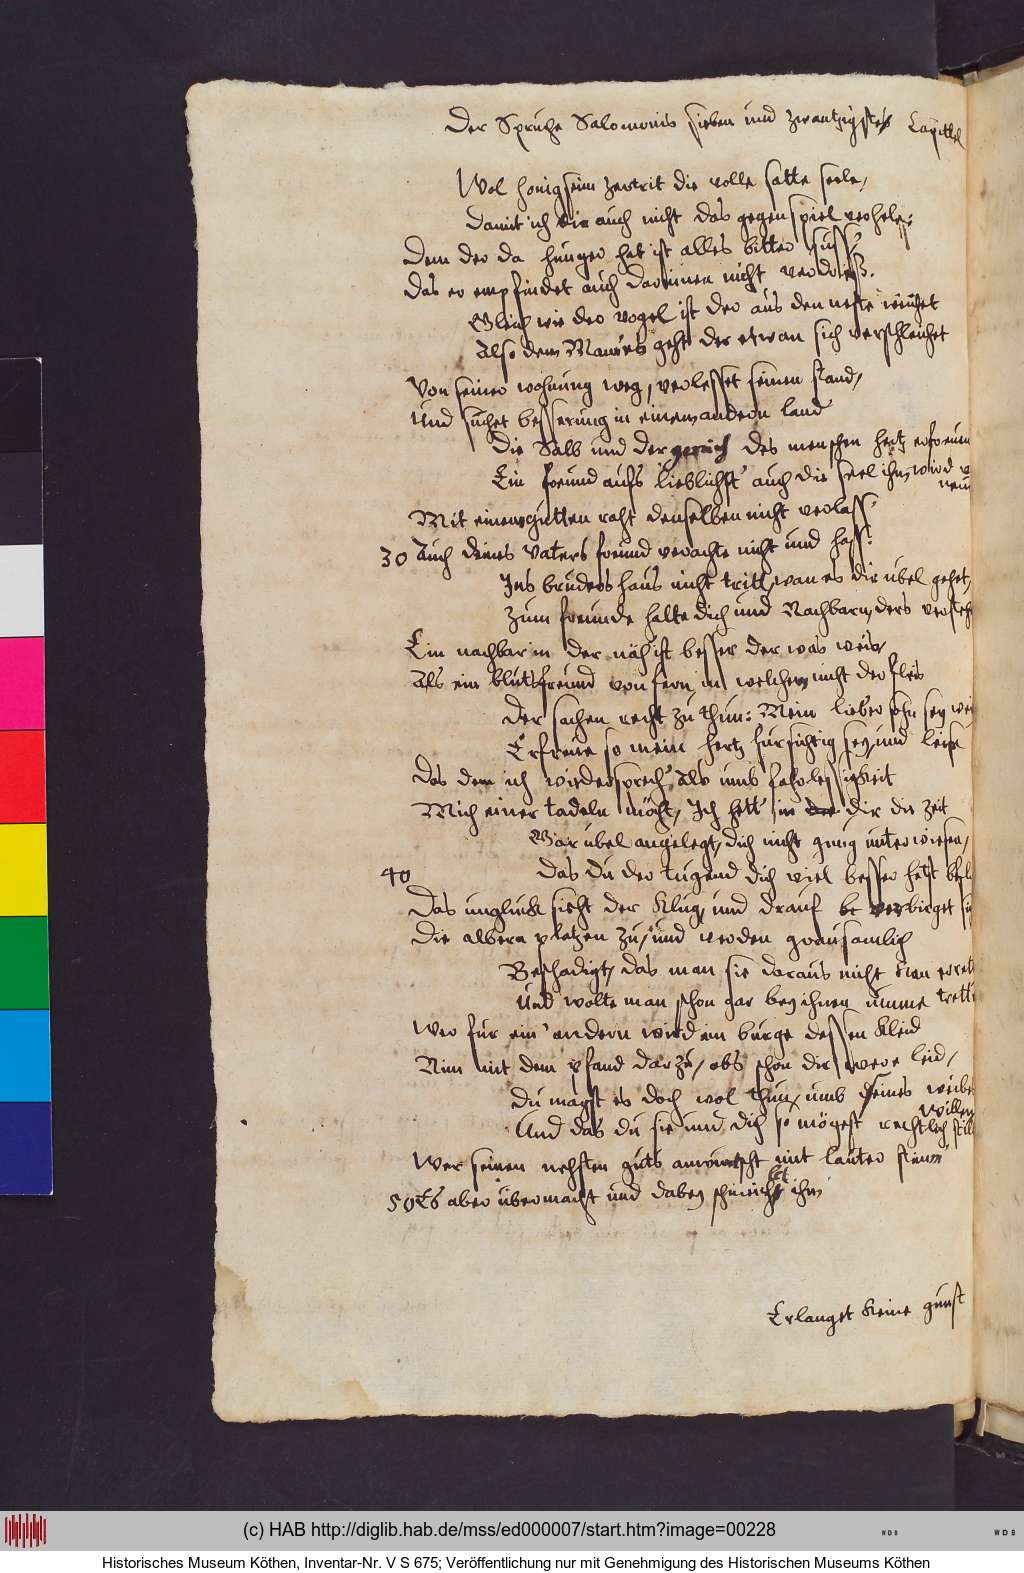 Der Spruche Salomonis sieben und zwantzigstes Capittel
Wol honigseim zertrit die volle satte seele/
Damit ich dir auch nicht das gegenspiel verhele:
Dem der da hunger hat ist alles bitter süss,
Das er empfindet auch darinnen nicht verdries.
Gleich wie der vogel ist der aus dem neste weichet
Also dem Manne's geht der etwan sich verschleichet
Von seiner wohnung weg, verlesset seinen stand/
Und suchet besserung in einem andern land
Die Salb und der geruch des menschen hertz erfreuen
Ein freund aufs lieblichst' auch die seel ihm, wird
Mit einem gutten raht denselben nicht verlass'
30 Auch deines Vaters freund verachte nicht und hass:
Ins bruders haus nicht tritt, wan es dir ubel gehet,
Zum freunde halte dich und Nachbarn, ders versteh
Ein nachbar in der näh' ist besser der was weis/
Als ein blutsfreund von fern, in welchem nicht der fleis
Der sachen recht zu thun: Mein lieber sohn sey wei
Erfreue so mein hertz fursichtig sey, und leise
Das dem ich wiedersprech', als umb fahrlessigkeit
Mich einer tadeln möcht, Ich hett' in der dir die zeit
Gar ubel angelegt, dich nicht gnug unterwiesen/
40 Das du der tugend dich viel besser hetst befl
Das ungluck sieht der Klug, und drauf be verbirget si
Die albern platzen zu/ und werden grausamlich
Beschadigt, das man sie daraus nicht kan erret
Und wolte man schon gar bey ihnen umme trett
Wer fur ein' andern wird ein burge dessen Kleid
Nim mit dem pfand darzu/ obs schon dir were leid/
Du magst es doch wol thun, umb seines weibes
willen
Und das du sie und dich so mögest rechtlich still
Wer seinen nehsten guts anwüntscht mit lauter stimm'
50 Es aber übermacht und dabey schmeichelt ihm
Erlanget keine gunst
(c) HAB http://diglib.hab.de/mss/ed000007/start.htm?image=00228
WDB
WDB
Historisches Museum Köthen, Inventar-Nr. V S 675; Veröffentlichung nur mit Genehmigung des Historischen Museums Köthen